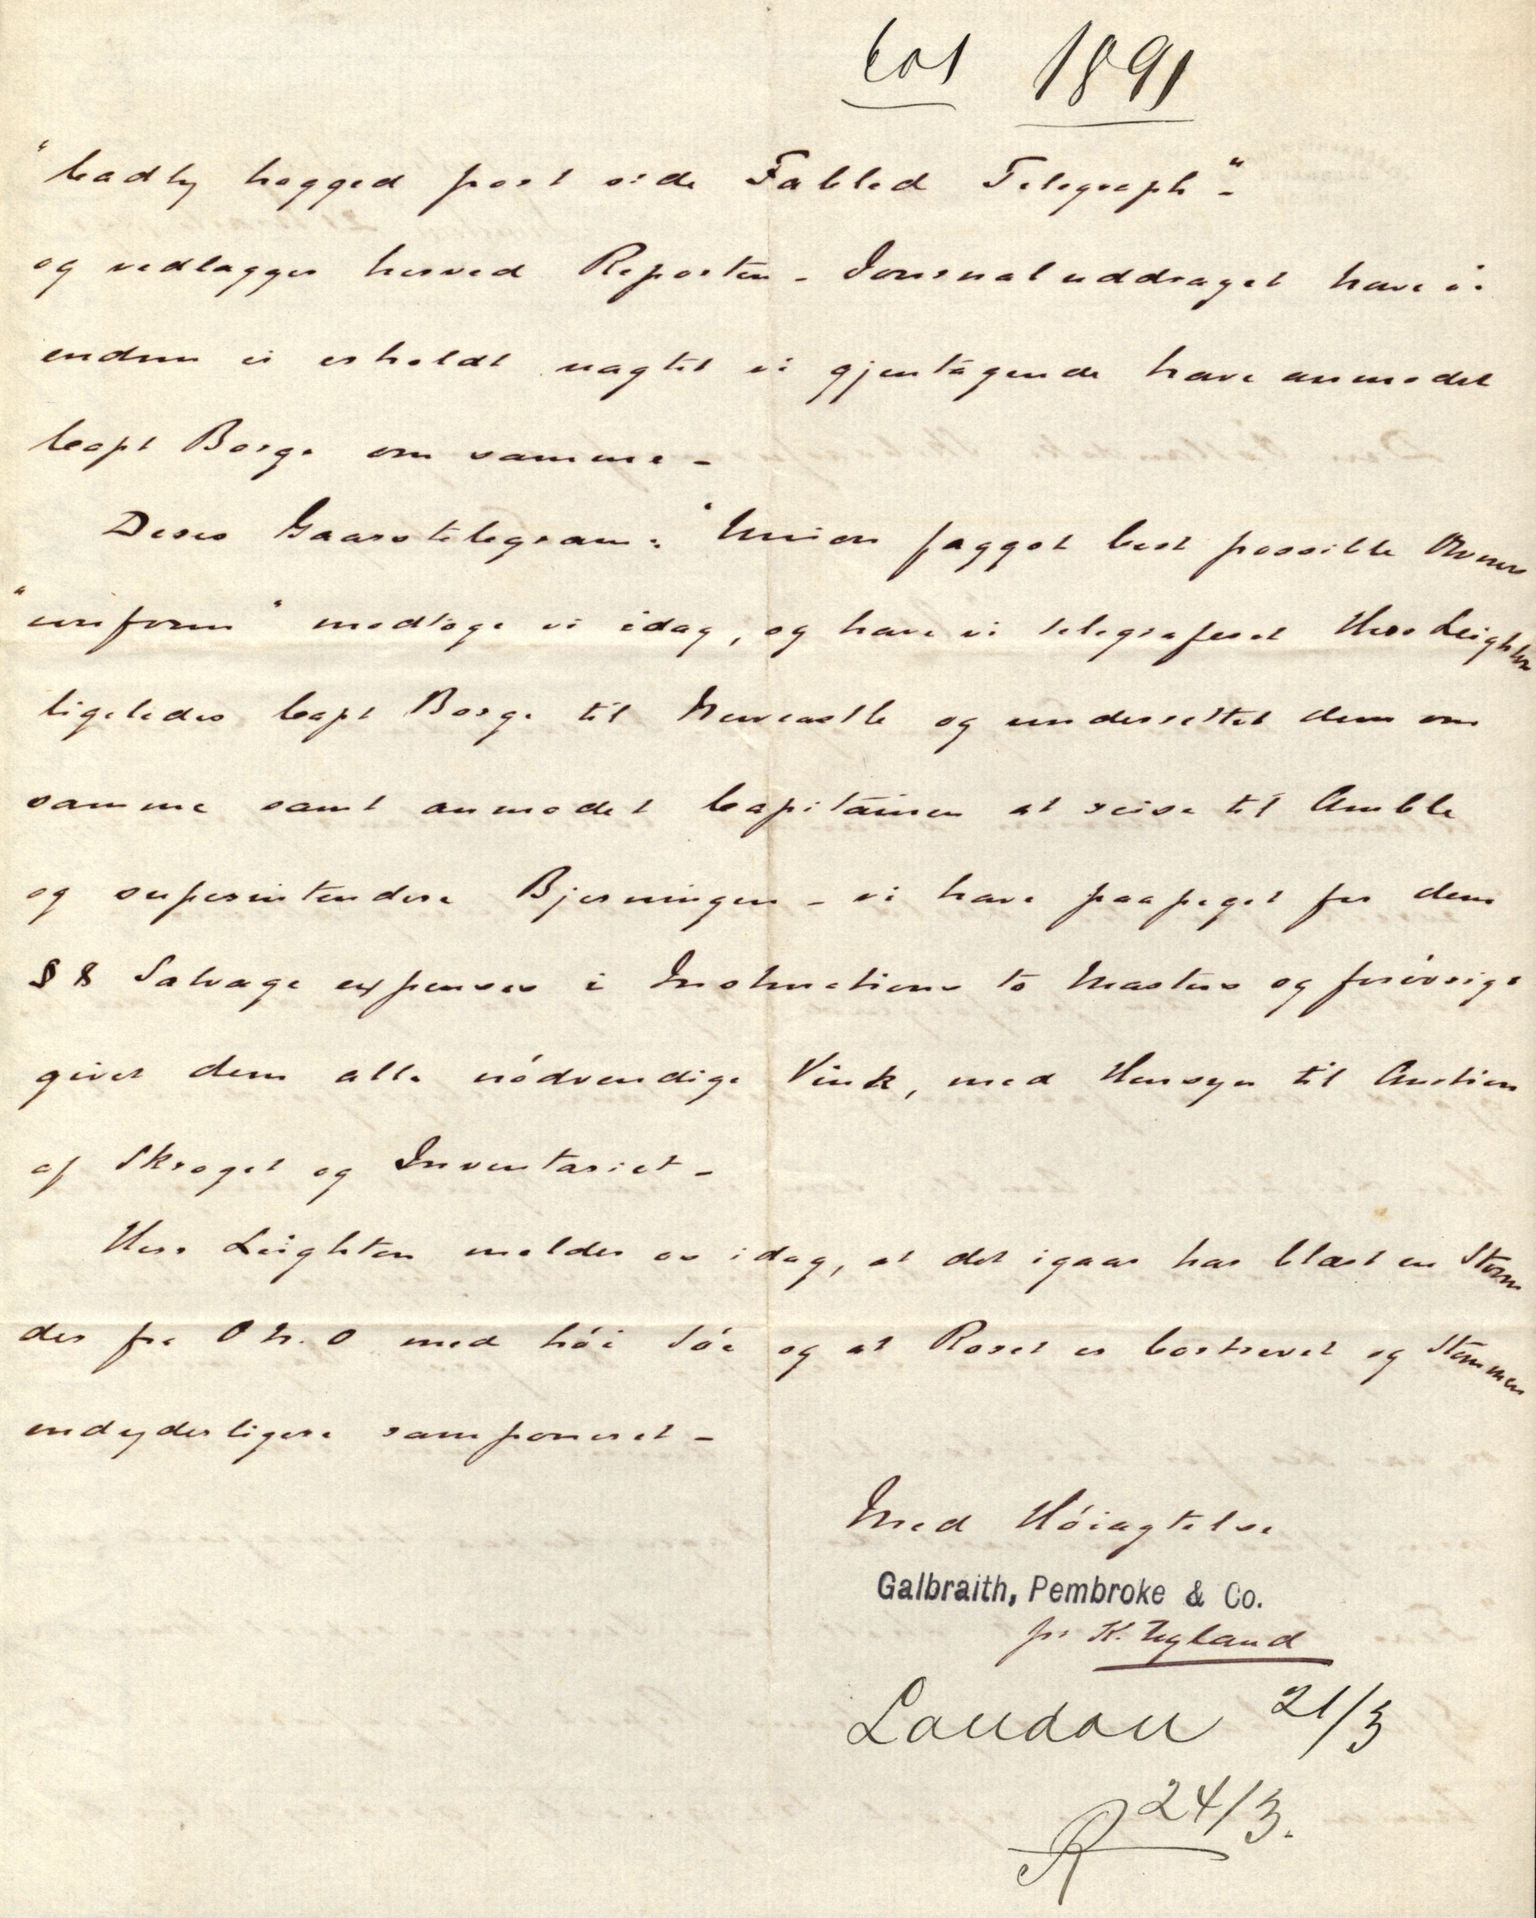 601 1891
"badly hogged port side Fabled Telegraph" -
og vedlægges herved Reporten - Journaluddraget have vi
endnu ei erholdt uagtet vi gjentagende have anmodet
Capt Borge om samme -
Deres Gaarstelegram: "Union faggot best possible Owners
"uniform" modtoge vi idag, og have vi telegraferet Herr Leighton
ligeledes Capt Borge til Newcastle og underrettet dem om
samme samt anmodet Capitainen at reise til Amble
og superintendere Bjerningen - vi have paapeget for dem
§ 8 Salvage expenses i Instructions to Masters og forövrigt
givet dem alle nödvendige Vink, med Hensyn til Auction
af Skroget og Inventariet -
Herr Leighton melder os idag, at det igaar har blæst en Storm
der fra O N. O med höi Söe og at Roret er bortrevet og Stevnen
endyderligere ramponeret -
Med Höiagtelse
Galbraith, Pembroke & Co.
pr K. Ugland
London 21/3
R 24/3.